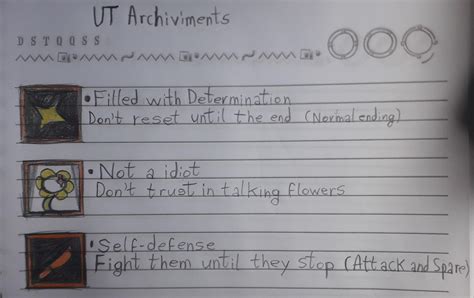 UT Archiviments
D S T Q Q S S
• Filled with Determination
Don't reset until the end (Normal ending)
• Not a idiot
Don't trust in talking flowers
• Self-defense
Fight them until they stop (Attack and Spare)